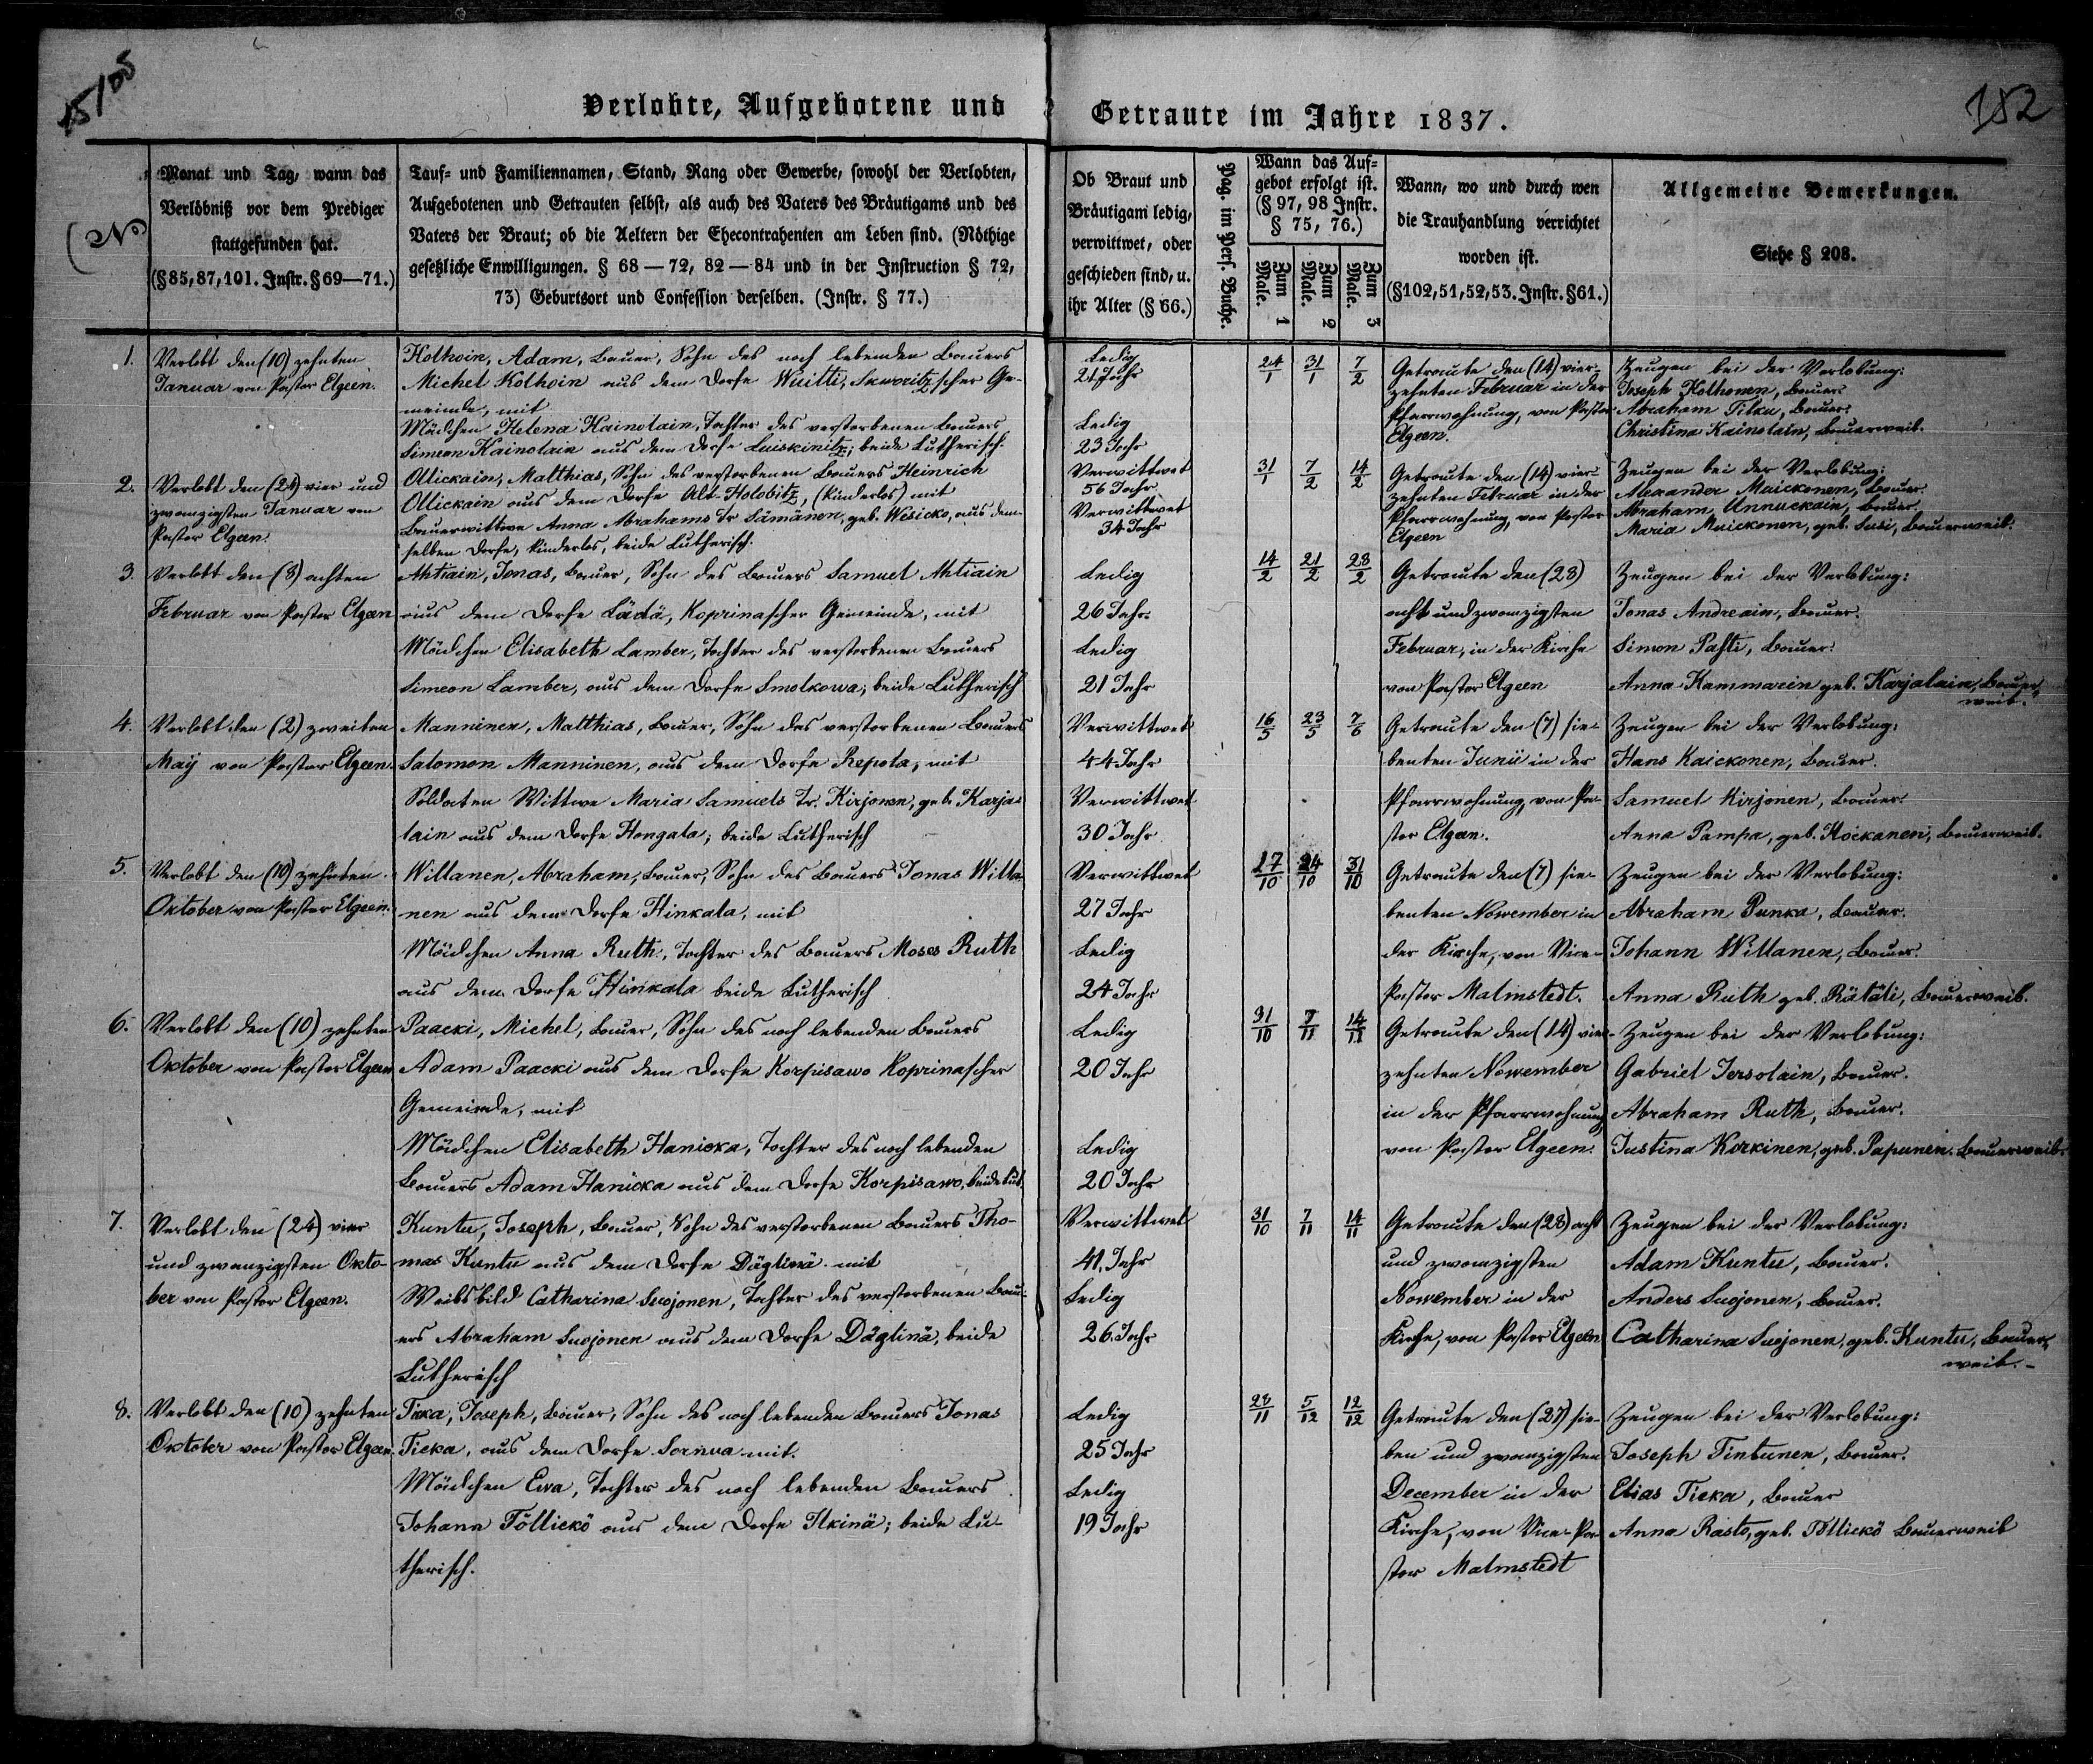 15/105
182
Verlobte, Aufgebotene und Getraute im Jahre 1837.
No
Monat und Tag, wann das
Verlöbniß vor dem Prediger
stattgefunden hat.
(§85,87,101. Instr. §69—71.)
Tauf- und Familiennamen, Stand, Rang oder Gewerbe, sowohl der Verlobten,
Aufgebotenen und Getrauten selbst, als auch des Vaters des Bräutigams und des
Vaters der Braut; ob die Aeltern der Ehecontrahenten am Leben sind. (Nöthige
gesetzliche Enwilligungen. § 68 — 72, 82 — 84 und in der Instruction § 72,
73) Geburtsort und Confession derselben. (Instr. § 77.)
Ob Braut und
Bräutigam ledig,
verwittwet, oder
geschieden sind, u.
ihr Alter (§ 66.)
Pag. im Pers. Buche.
Wann das Auf-
gebot erfolgt ist.
(§ 97, 98 Instr.
§ 75, 76.)
Zum 1 Male.
Zum 2 Male.
Zum 3 Male.
Wann, wo und durch wen
die Trauhandlung verrichtet
worden ist.
(§102,51,52,53. Instr. §61.)
Allgemeine Bemerkungen.
Siehe § 208.
1.
Verlobt den (10) zehnten
Januar von Pastor Elgeen.
Kolhoin, Adam, Bauer, Sohn des noch lebenden Bauers
Michel Kolhoin aus dem Dorfe Wuitti, Skworitz'scher Ge-
meinde, mit
Mädchen Helena Kainolain, Tochter des verstorbenen Bauers
Simeon Kainolain aus dem Dorfe Luiskinitz; beide Lutherisch.
Ledig
21 Jahr
Ledig
23 Jahr
24/1 31/1 7/2
Getraute den (14) vier-
zehnten Februar in der
Pfarrwohnung, von Pastor
Elgeen.
Zeugen bei der Verlobung:
Joseph Kolhonen, Bauer.
Abraham Tilku, Bauer.
Christina Kainolain, Bauerweib.
2.
Verlobt den (24) vier und
zwanzigsten Januar von
Pastor Elgeen.
Ollickain, Matthias, Sohn des verstorbenen Bauers Heinrich
Ollickain aus dem Dorfe Alt-Holobitz, (kinderlos) mit
Bauerwittwe Anna Abrahams Tr Sämänen, geb. Wesicko, aus dem-
selben Dorfe, kinderlos, beide Lutherisch.
Verwittwet
56 Jahr
Verwittwet
34 Jahr
31/1 7/2 14/2
Getraute den (14) vier-
zehnten Februar in der
Pfarrwohnung, von Pastor
Elgeen
Zeugen bei der Verlobung:
Alexander Muickonen, Bauer.
Abraham Annuckain, Bauer.
Maria Muickonen, geb. Susi, Bauerweib.
3.
Verlobt den (8) achten
Februar von Pastor Elgeen
Ahtiain, Jonas, Bauer, Sohn des Bauers Samuel Ahtiain
aus dem Dorfe Lädä, Koprinascher Gemeinde, mit
Mädchen Elisabeth Lamber, Tochter des verstorbenen Bauers
Simeon Lamber, aus dem Dorfe Smolkowa; beide Lutherisch
Ledig
26 Jahr
Ledig
21 Jahr
14/2 21/2 28/2
Getraute den (28)
acht und zwanzigsten
Februar, in der Kirche
von Pastor Elgeen
Zeugen bei der Verlobung:
Jonas Andreain, Bauer.
Simon Pahti, Bauer.
Anna Kammarin geb. Karjalain, Bauer-
weib.
4.
Verlobt den (2) zweiten
Maij von Pastor Elgeen.
Manninen, Matthias, Bauer, Sohn des verstorbenen Bauers
Salomon Manninen, aus dem Dorfe Repola, mit
Soldaten Wittwe Maria Samuels Tr. Kirjonen, geb. Karja-
lain aus dem Dorfe Hongala; beide Lutherisch
Verwittwet
44 Jahr
Verwittwet
30 Jahr
16/5 23/5 7/6
Getraute den (7) sie-
benten Junii in der
Pfarrwohnung, von Pa-
stor Elgeen.
Zeugen bei der Verlobung:
Hans Kaickonen, Bauer.
Samuel Kirjonen, Bauer.
Anna Pampa, geb. Hockanen, Bauerweib.
5.
Verlobt den (10) zehnten
Oktober von Pastor Elgeen.
Willanen, Abraham, Bauer, Sohn des Bauers Jonas Willa-
nen aus dem Dorfe Hinkala, mit
Mädchen Anna Ruth, Tochter des Bauers Moses Ruth
aus dem Dorfe Hinkala beide Lutherisch
Verwittwet
27 Jahr
Ledig
24 Jahr
17/10 24/10 31/10
Getraute den (7) sie-
benten November in
der Kirche, von Vice-
Pastor Malmstedt.
Zeugen bei der Verlobung:
Abraham Punka, Bauer.
Johann Willanen, Bauer.
Anna Ruth geb. Rätäli, Bauerweib.
6.
Verlobt den (10) zehnten
Oktober von Pastor Elgeen
Paacki, Michel, Bauer, Sohn des noch lebenden Bauers
Adam Paacki aus dem Dorfe Korpisawo Koprinascher
Gemeinde, mit
Mädchen Elisabeth Hanicka, Tochter des noch lebenden
Bauers Adam Hanicka aus dem Dorfe Korpisawo, beide Lut.
Ledig
20 Jahr
Ledig
20 Jahr
31/10 7/11 14/11
Getraute den (14) vier-
zehnten November
in der Pfarrwohnung
von Pastor Elgeen.
Zeugen bei der Verlobung:
Gabriel Jersolain, Bauer.
Abraham Ruth, Bauer.
Justina Korkinen, geb. Papunen. Bauerweib.
7.
Verlobt den (24) vier
und zwanzigsten Okto-
ber von Pastor Elgeen.
Kuntu, Joseph, Bauer, Sohn des verstorbenen Bauers Tho-
mas Kuntu aus dem Dorfe Däglinä mit
Weibsbild Catharina Suojonen, Tochter des verstorbenen Bau-
ers Abraham Suojonen aus dem Dorfe Däglinä, beide
Lutherisch
Verwittwet
41 Jahr
Ledig
26 Jahr
31/10 7/11 14/11
Getraute den (28) acht
und zwanzigsten
November in der
Kirche, von Pastor Elgeen
Zeugen bei der Verlobung:
Adam Kuntu, Bauer.
Anders Suojonen, Bauer.
Catharina Suojonen, geb. Kuntu, Bauer-
weib.-
8.
Verlobt den (10) zehnten
Oktober von Pastor Elgeen.
Ticka, Joseph, Bauer, Sohn des noch lebenden Bauers Jonas
Ticka, aus dem Dorfe Sornua mit.
Mädchen Ewa, Tochter des noch lebenden Bauers
Johann Töllickö aus dem Dorfe Ilkinä; beide Lu-
therisch.
Ledig
25 Jahr
Ledig
19 Jahr
28/11 5/12 12/12
Getraute den (27) sie-
ben und zwanzigsten
December in der
Kirche, von Vice-Pa-
stor Malmstedt
Zeugen bei der Verlobung:
Joseph Tintunen, Bauer.
Elias Ticka, Bauer
Anna Rasto, geb. Töllickö Bauerweib